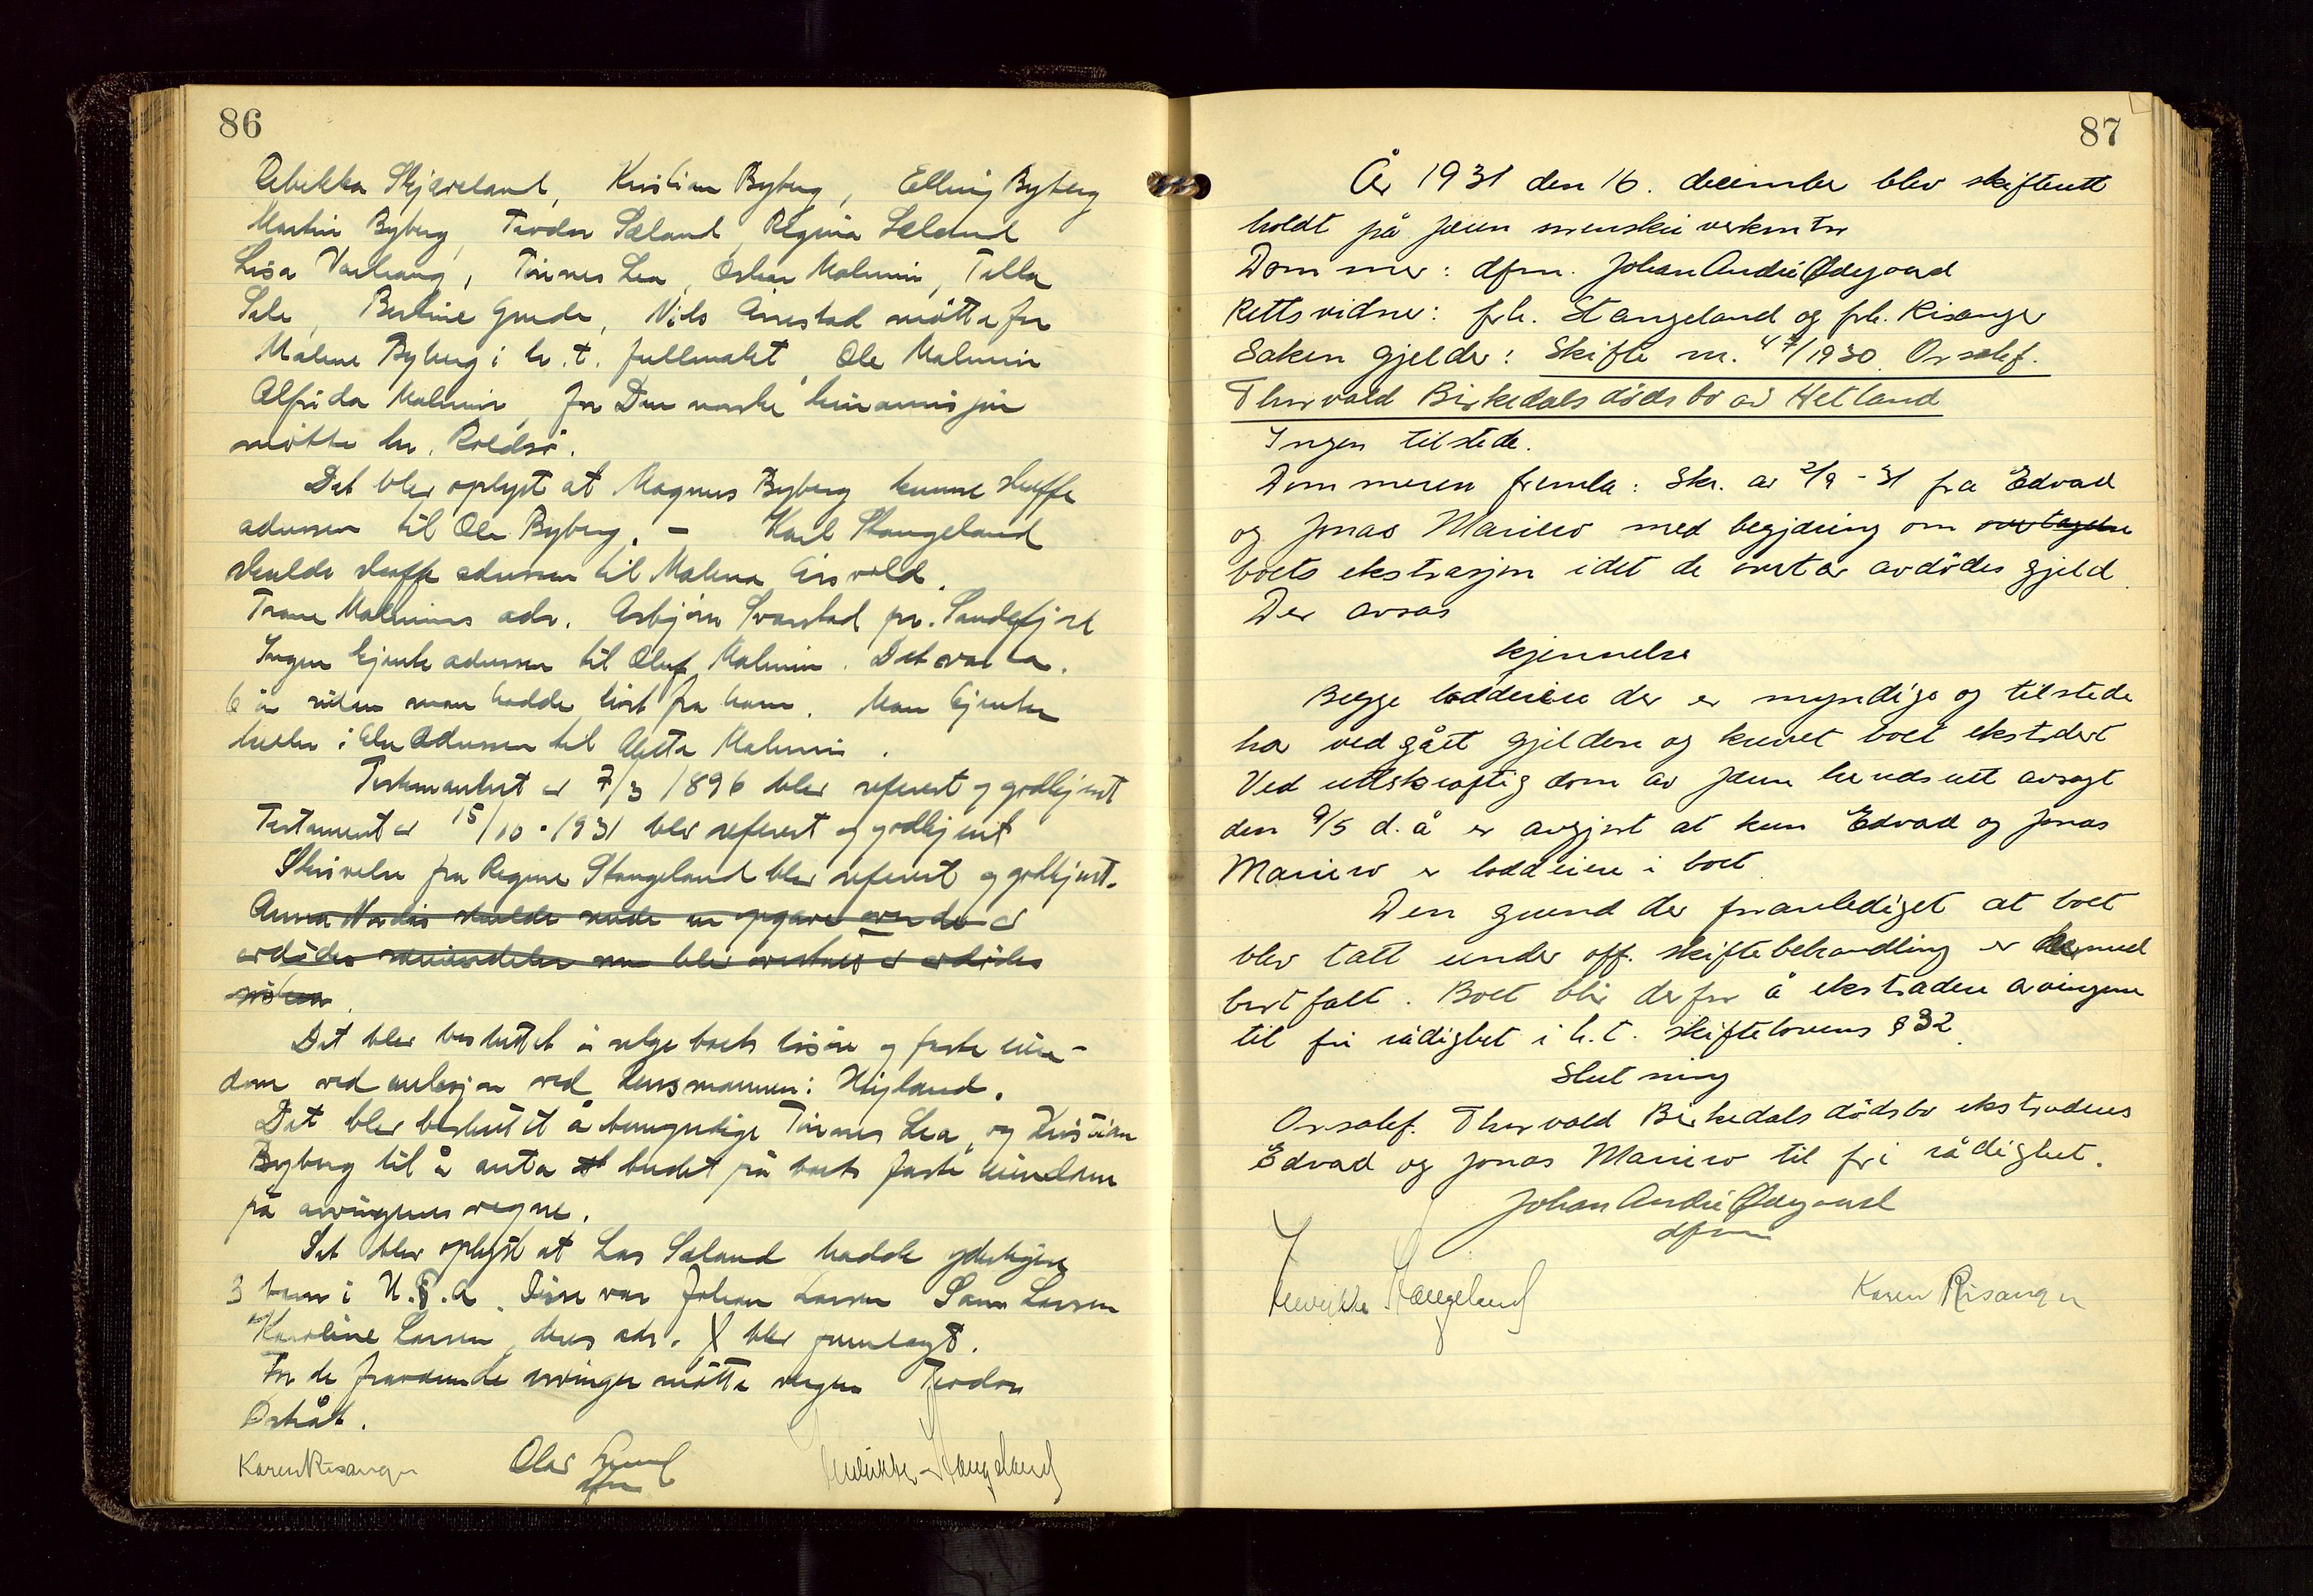 86
Rebekka Skjæveland, Kristian Byberg, Elling Byberg
Martin Byberg, Teodor Sæland, Regina Sæland
Lisa Varhaug, Tønnes Lea, Oskar Malmin, Tilla
Sele, Bertine Grude, Nils Årrestad møtte for
Malene Byberg i h.t. fullmakt, Ole Malmin
Alfrida Malmin, for Den norske kinamisjon
møtte hr. Roldsø.
Det blev oplyst at Magnus Byberg kunne skaffe
adressen til Ole Byberg. - Karl Stangeland
skulde skaffe adressen til Malena
Malmins adr. Asbjørn Svarstad pr. Sandefjord
Ingen kjente adressen til Oluf Malmin. Det var ca.
6 år siden man hadde hørt fra ham. Man kjente
heller ikke adressen til Malmin.
Testamentet av 7/3 1896 blev referert og godkjent
Testament av 15/10-1931 blev referert og godkjent
Skrivelse fra Regine Stangeland blev referert og godkjent.
Anna skulde sende en opgave over de av
avdødes som blev av avdødes
Det blev besluttet å selge boets løsøre og faste eien-
dom ved auksjon ved lensmannen i Høyland.
Det blev besluttet å bemyndige Tønnes Lea, og Kristian
Byberg til å anta budet på boets faste eiendom
på arvingenes vegne.
Det blev oplyst at Lars Sæland hadde yderligere
3 barn i U.S.A. Disse var Johan Larsen Sam Larsen
Karoline Larsen, deres adr. blev fremlagt.
For de fraværende arvinger møtte vergen Teodor
Østråt.
Karen Risanger Olav dfm Henrikke Stangeland
87
År 1931 den 16. december blev skifterett
holdt på Jæren sorenskriverkontor
Dommer: dfm. Johan André Ødegaard
Rettsvidner: frk. Stangeland og frk. Risanger
Saken gjelder: Skifte nr. 47/1930. Orsalsf.
Thorvald Birkedals dødsbo av Hetland
Ingen tilstede.
Dommeren fremla: Skr. av 2/9-31 fra Edvard
og Jonas Mariero med begjæring om overtagelse
boets ekstrasjon idet de overtar avdødes gjeld.
Der avsas
kjennelse
Begge loddeiere der er myndige og tilstede
har vedgått gjelden og krevet boet ekstradert
Ved rettskraftig dom av Jæren herredsrett avsagt
den 9/5 d.å er avgjort at kun Edvard og Jonas
Mariero er loddeiere i boet.
Den grund der foranlediget at boet
blev tatt under off. skiftebehandling er dermed
bortfalt. Boet blir derfor å ekstradere arvingene
til fri rådighet i h.t. skiftelovens § 32.
Slutning
Orsalsf. Thorvald Birkedals dødsbo ekstraderes
Edvard og Jonas Mariero til fri rådighet.
Johan André Ødegaard
dfm
Henrikke Stangeland Karen Risanger